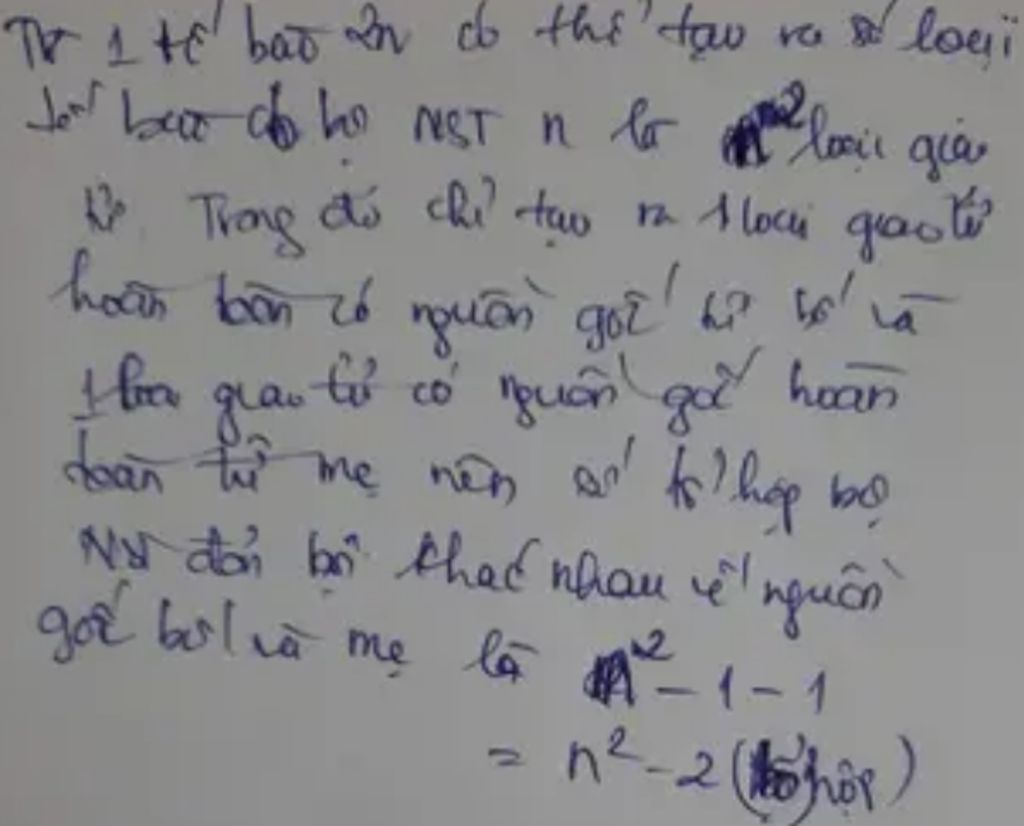 Từ 1 tế bào 2n có thể tạo ra số loại
tế bào có bộ NST n là n² loại giao
tử. Trong đó chỉ tạo ra 1 loại giao tử
hoàn toàn có nguồn gốc từ bố và
1 loại giao tử có nguồn gốc hoàn
toàn từ mẹ nên số tổ hợp bộ
NST đơn bội khác nhau về nguồn
gốc bố và mẹ là n² - 1 - 1
= n² - 2 (tổ hợp)